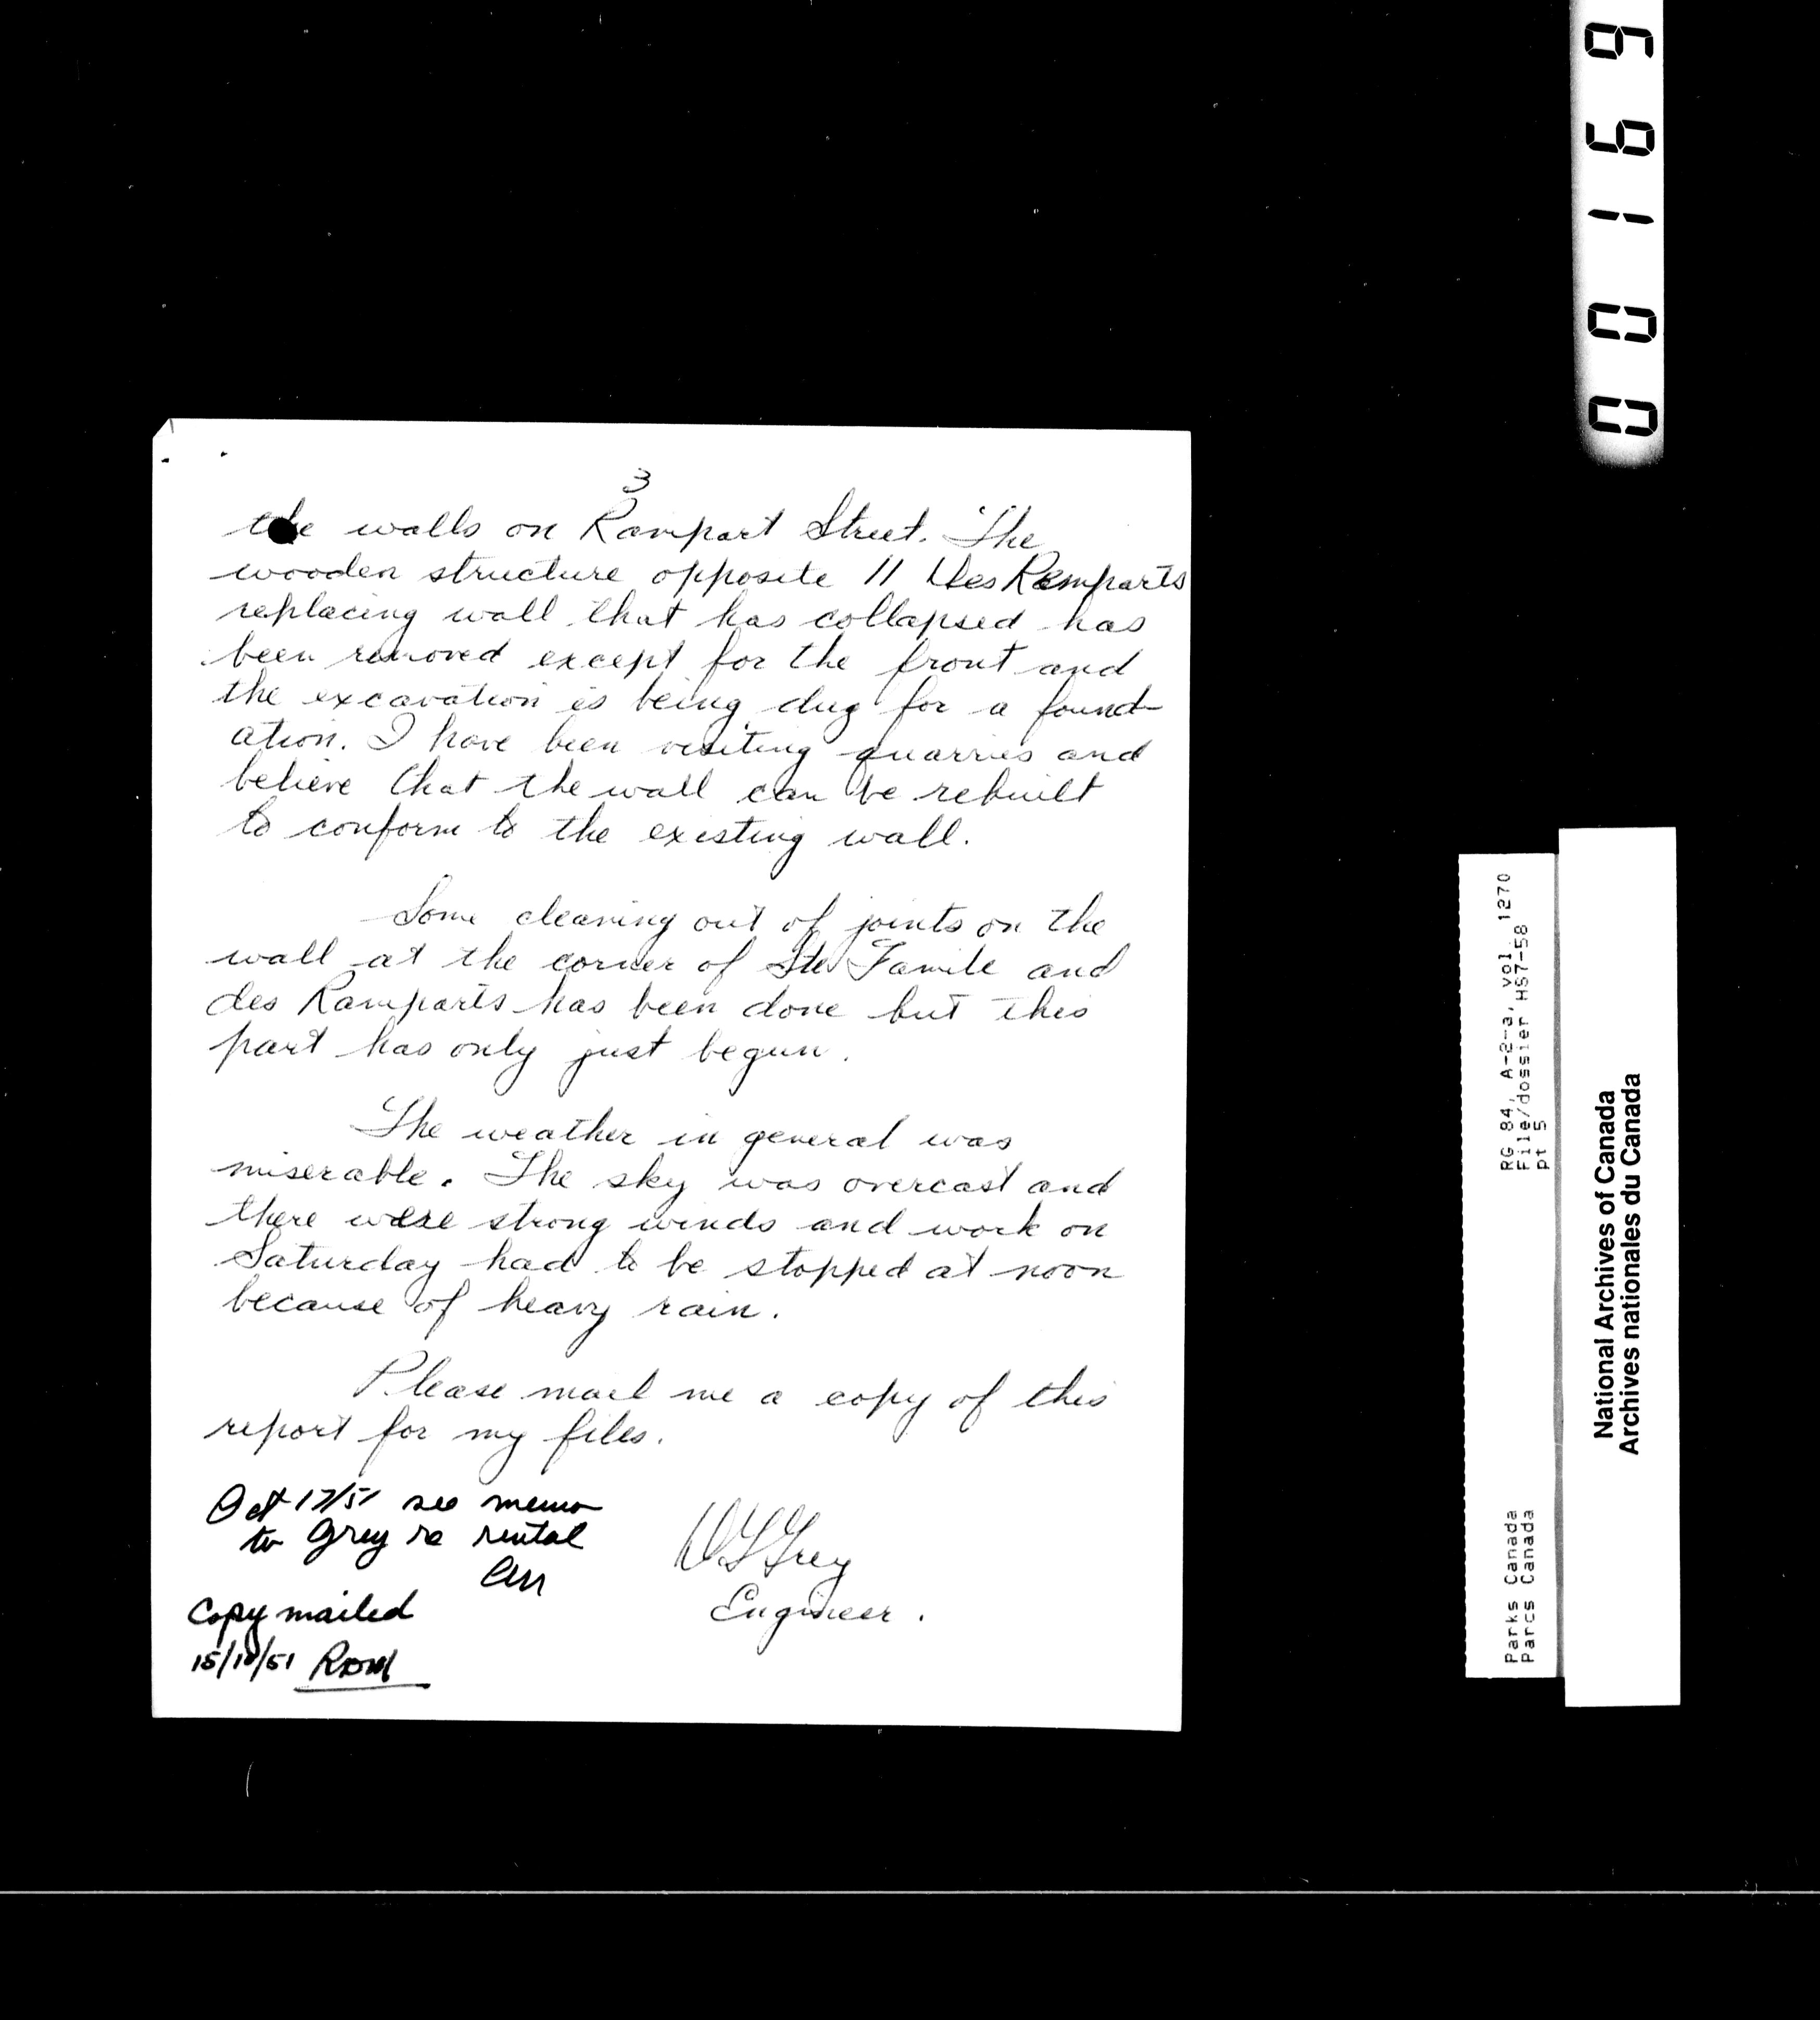 3
the walls on Rampart Street. The
wooden structure opposite 11 Des Remparts
replacing wall that has collapsed has
been removed except for the front and
the excavation is being dug for a found-
ation. I have been visiting quarries and
believe that the wall can be rebuilt
to conform to the existing wall.
Some cleaning out of joints on the
wall at the corner of Ste Famile and
des Ramparts has been done but this
part has only just begun.
The weather in general was
miserable. The sky was overcast and
there were strong winds and work on
Saturday had to be stopped at noon
because of heavy rain.
Please mail me a copy of this
report for my files.
Oct 17/51 see memo
to Grey re rental
Grey
Engineer.
Copy mailed
15/10/51
00169
RG 84, A-2-a, vol. 1270
File/dossier HS7-58
pt 5
Parks Canada
Parcs Canada
National Archives of Canada
Archives nationales du Canada